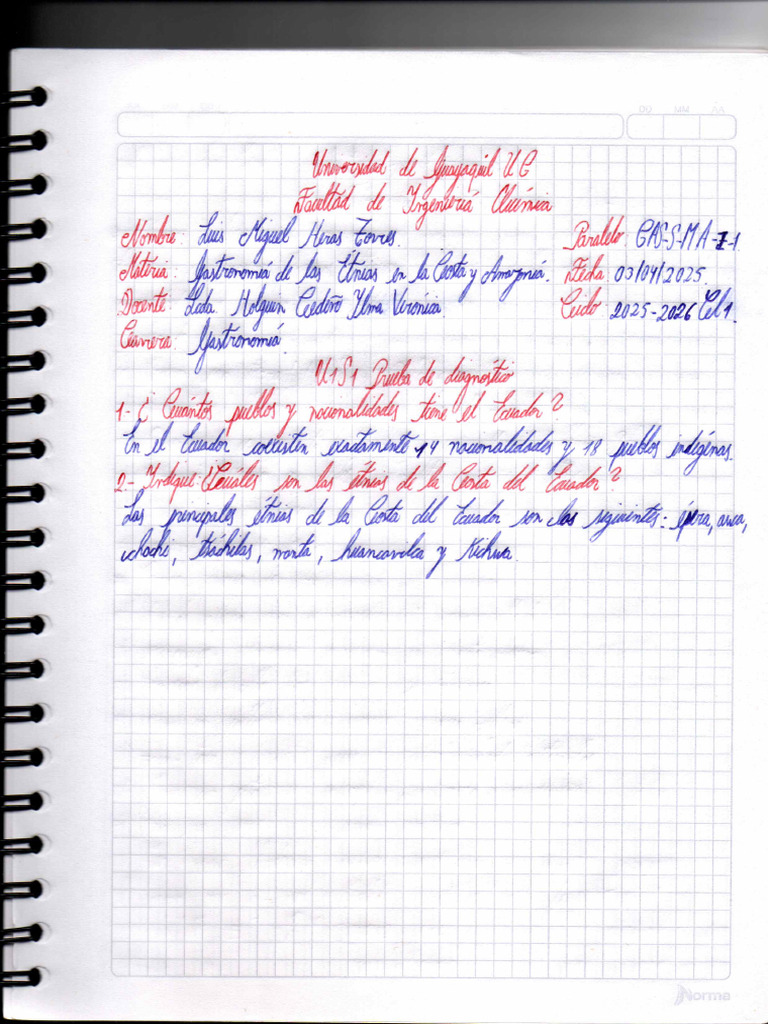 DD MM AA
Universidad de Guayaquil UG
Facultad de Ingenieriá Química
Nombre: Luis Miguel Heras Torres. Paralelo: GAS-S-MA-1-1
Materia: Gastronomiá de las Étnias en la Costa y Amazoniá. Fecha: 03/04/2025.
Docente: Lcda. Holguin Cedeño Ylma Verónica. Ciclo: 2025-2026 CI1.
Carrera: Gastronomiá.
U1S1 Prueba de diagnóstico
1- ¿Cuántos pueblos y nacionalidades tiene el Ecuador?
En el Ecuador coexisten exactamente 14 nacionalidades y 18 pueblos indígénas.
2- Indique: ¿Cuáles son las étnias de la Costa del Ecuador?
Las principales étnias de la Costa del Ecuador son las siguientes: épera, awa,
chachi, tsáchilas, manta, huancavilca y Kichwa.
Norma